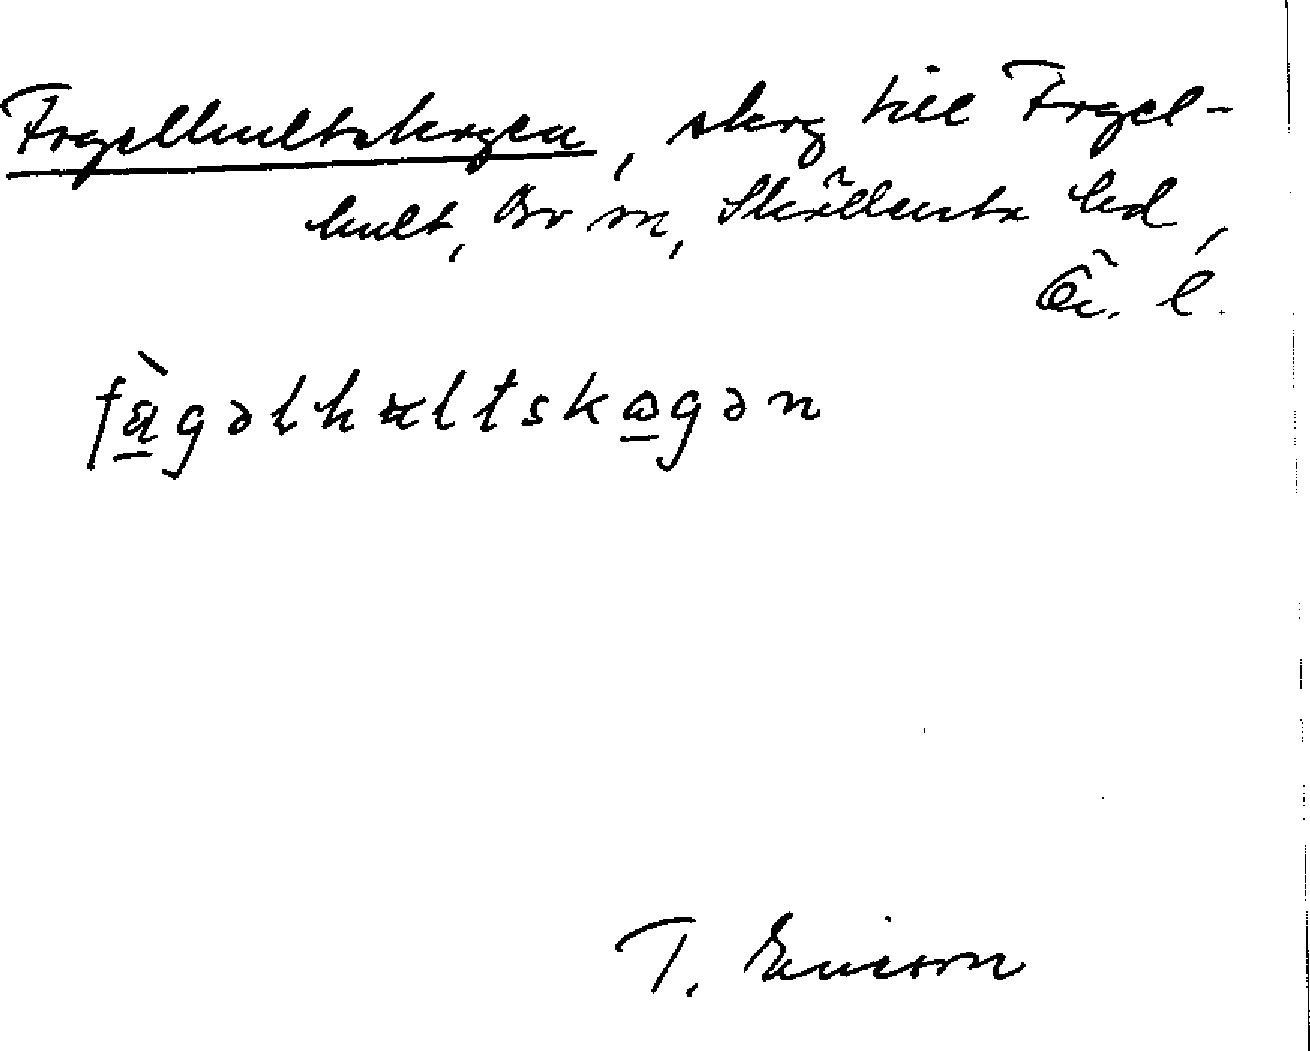 Fogelhultskogen, skog till Fogel-
hult, Bo sn, Sköllersta hd,
Ö. l.
fàgəlhultskogən
T. Ericson